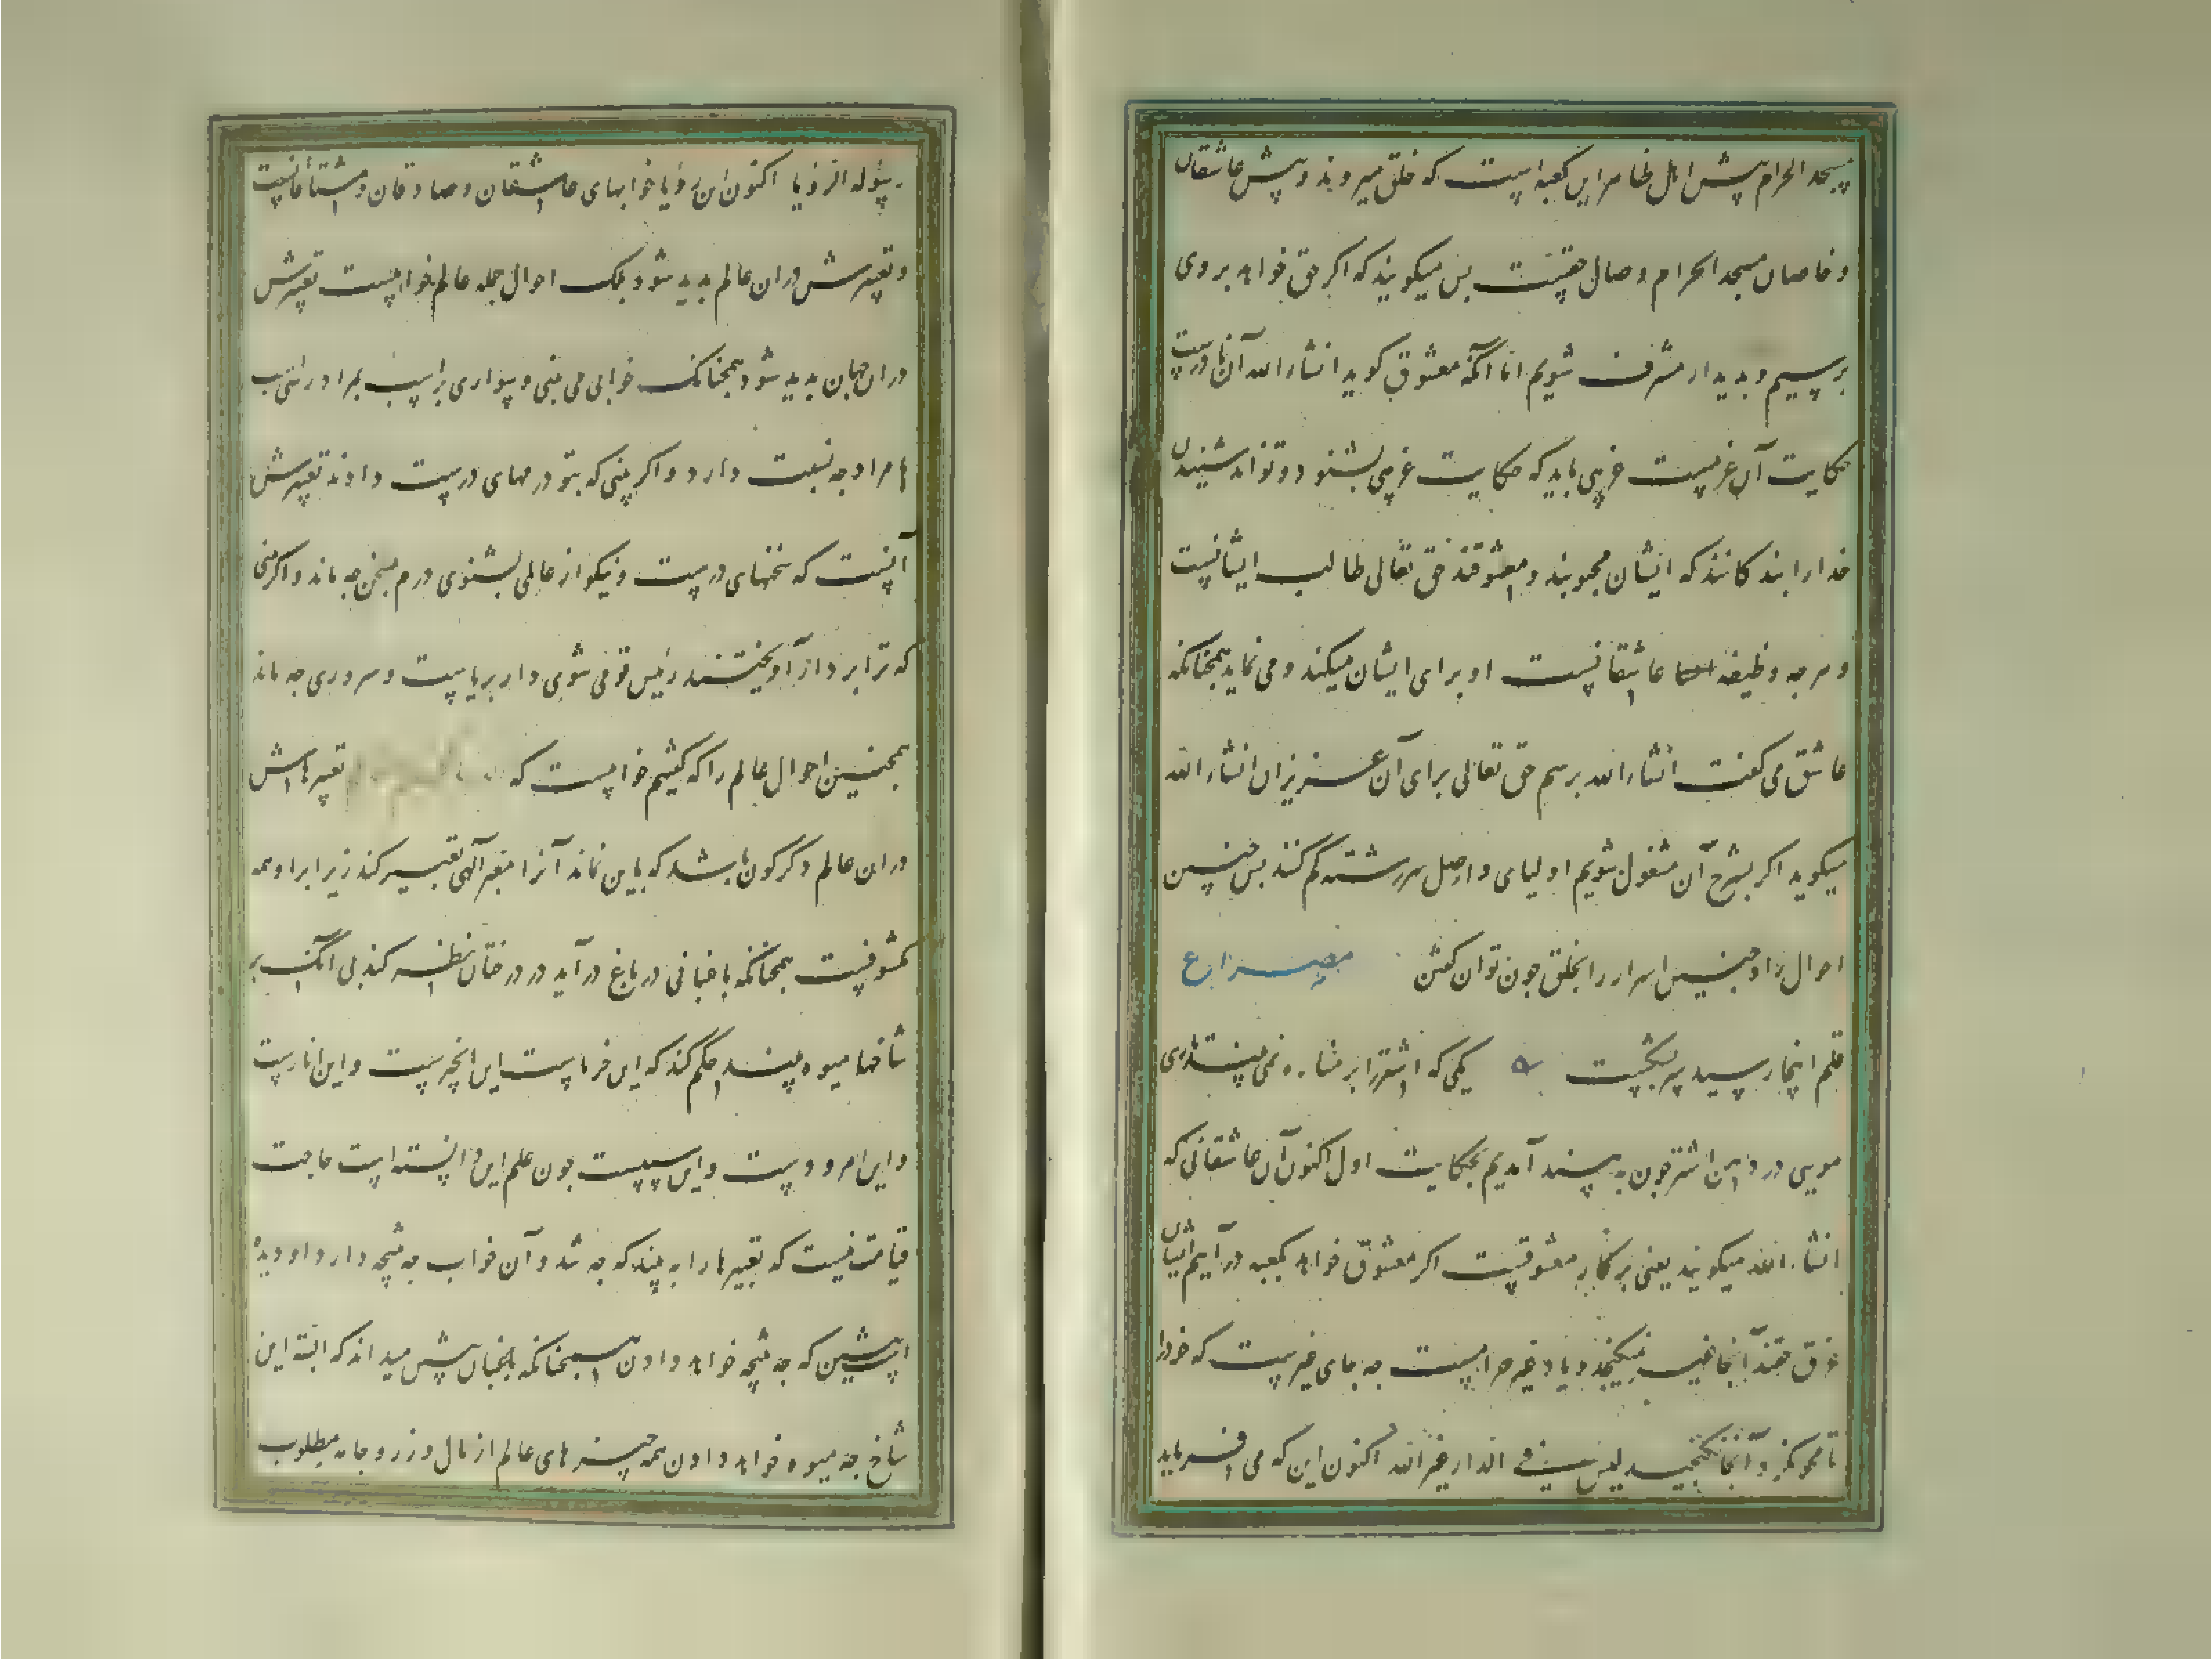 مسجد الحرام پیش اهل ظاهر این کعبه است که خلق میروند و پیش عاشقان
و خاصان مسجد الحرام وصال حقست پس میکویند که اکر حق خواهد بروی
برسیم و بدیدار مشرف شویم اما آنکه معشوق کوید انشاء الله آن نادرست
حکایت آن غریبست غریبی باید که حکایت غریبی بشنود و تواند شنیدن
خدا را بندکانند که ایشان محبوبند و معشوقند حق تعالی طالب ایشانست
و هرچه وظیفه عاشقانست او برای ایشان میکند و می نماید همچنانکه
عاشق می کفت انشاء الله برسم حق تعالی برای آن عزیزان انشاء الله
میکوید اکر بشرح آن مشغول شویم اولیای واصل سررشته کم کنند پس چنین
احوال را و چنین اسرار را بخلق چون توان کفتن مصراع
قلم اینجا رسید سر بشکست یکی که اشتر را بر مناره نمی بیند تاری
موی در دهن اشتر چون بیند آمدیم بحکایت اول اکنون آن عاشقانی که
انشاء الله میکویند یعنی بر کار معشوقست اکر معشوق خواهد بکعبه درآییم ایشان
غرق حقند آنجا غیب نمیکنجد و یاد غیر حرامست چه جای غیرست که خود را
تا محو نکرد آنجا نکنجید لیس فی الدار غیر الله اکنون این که می فرماید
رسوله الرؤیا اکنون این رؤیا خوابهای عاشقان و صادقان و مشتاقانست
و تعبیرش در ان عالم پدید شود بلک احوال جمله عالم خوابست تعبیرش
در ان جهان پدید شود همچنانک خوابی می بینی و سواری بر اسب بمراد رسی اسب
با مراد چه نسبت دارد و اکر بینی که بتو درمهای درست دادند تعبیرش
آنست که سخنهای درست و نیکو از عالمی بشنوی درم بسخن چه ماند و اکر بینی
که ترا بر دار آویختند رئیس قومی شوی دار بریاست و سروری چه ماند
همچنین احوال عالم را که کفتیم خوابست که تعبیرهاش
در ان عالم دکرکون باشد که باین نماند آنرا معبر الهی تعبیر کند زیرا بر او همه
مکشوفست همچنانکه باغبانی در باغ در آید در درختان نظر کند بی آنک بر
شاخها میوه بیند حکم کند که این خرماست این انجیرست و این انارست
و این امرودست و این سیبست چون علم این دانسته است حاجت
قیامت نیست که تعبیرها را به بیند که چه شد و آن خواب چه نتیجه داد او دیده
است پیشین که چه نتیجه خواهد دادن همچنانکه باغبان پیش میداند که البته این
شاخ چه میوه خواهد دادن همه چیزهای عالم از مال و زر و جامه مطلوب